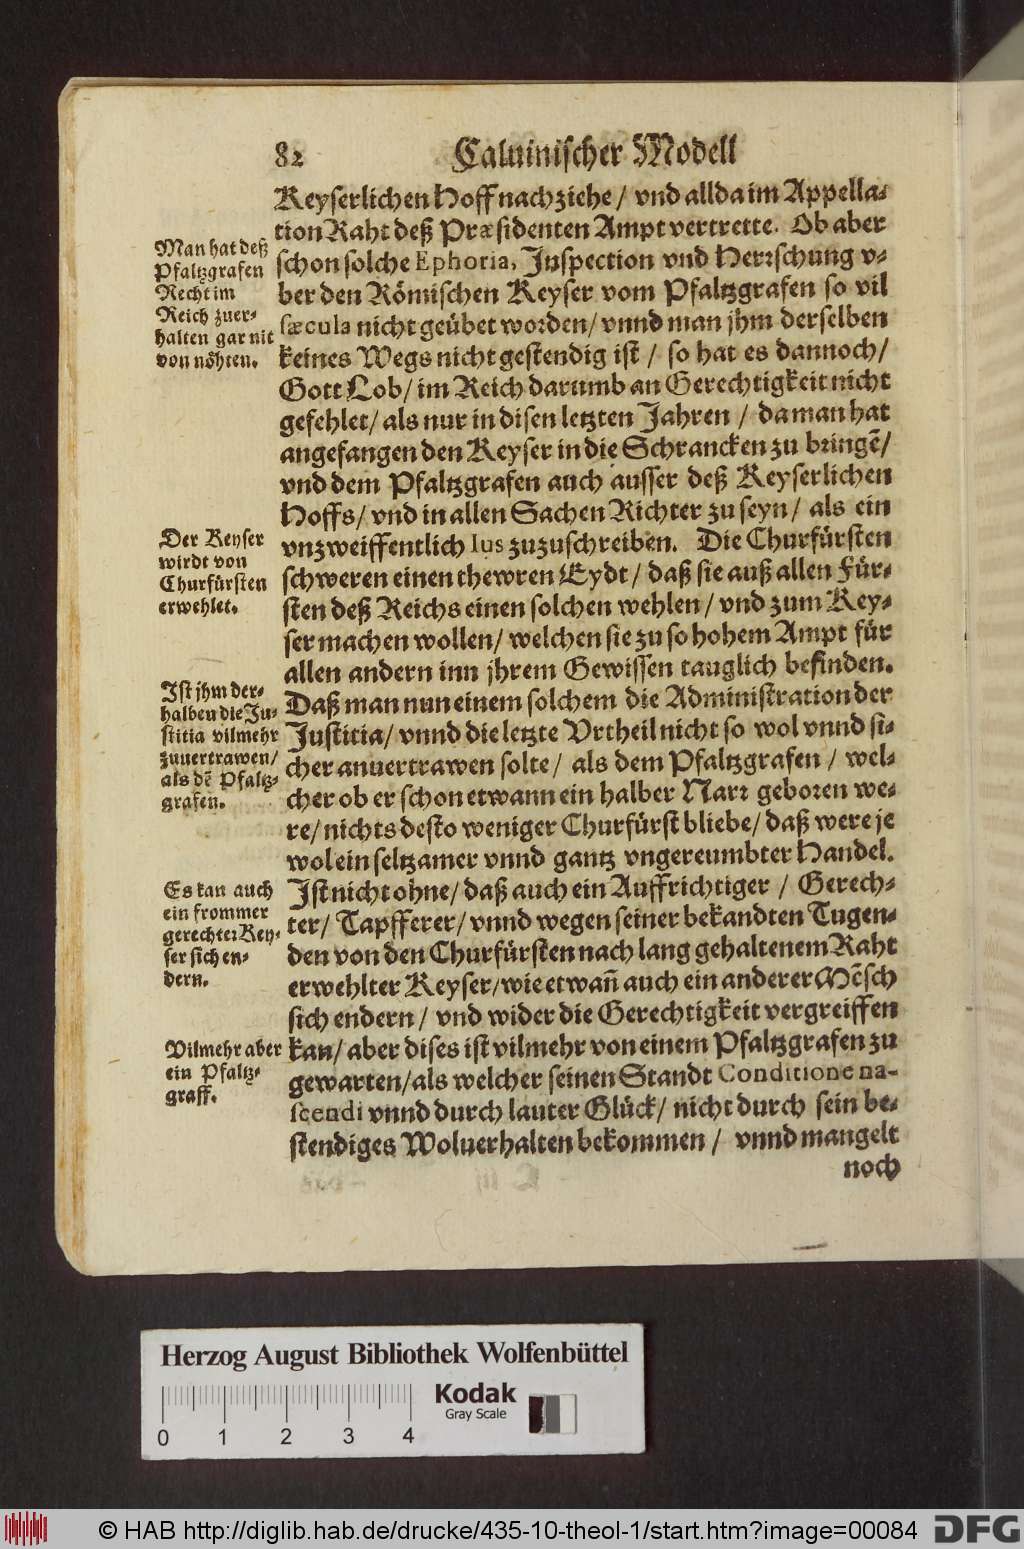 82 Caluinischer Modell
Keyserlichen Hoff nachziehe / vnd allda im Appella-
tion Raht deß Præsidenten Ampt vertrette. Ob aber
schon solche Ephoria, Inspection vnd Herrschung v-
ber den Römischen Keyser vom Pfaltzgrafen so vil
sæcula nicht geübet worden / vnnd man jhm derselben
keines Wegs nicht gestendig ist / so hat es dannoch /
Gott Lob / im Reich darumb an Gerechtigkeit nicht
gefehlet / als nur in disen letzten Jahren / da man hat
angefangen den Keyser in die Schrancken zu bringē /
vnd dem Pfaltzgrafen auch ausser deß Keyserlichen
Hoffs / vnd in allen Sachen Richter zu seyn / als ein
vnzweiffentlich Ius zuzuschreiben. Die Churfürsten
schweren einen thewren Eydt / daß sie auß allen Für-
sten deß Reichs einen solchen wehlen / vnd zum Key-
ser machen wollen / welchen sie zu so hohem Ampt für
allen andern inn jhrem Gewissen tauglich befinden.
Daß man nun einem solchem die Administration der
Justitia / vnnd die letzte Vrtheil nicht so wol vnnd si-
cher anuertrawen solte / als dem Pfaltzgrafen / wel-
cher ob er schon etwann ein halber Narr geboren we-
re / nichts desto weniger Churfürst bliebe / daß were je
wol ein seltzamer vnnd gantz vngereumbter Handel.
Ist nicht ohne / daß auch ein Auffrichtiger / Gerech-
ter / Tapfferer / vnnd wegen seiner bekandten Tugen-
den von den Churfürsten nach lang gehaltenem Raht
erwehlter Keyser / wie etwañ auch ein anderer Mēsch
sich endern / vnd wider die Gerechtigkeit vergreiffen
kan / aber dises ist vilmehr von einem Pfaltzgrafen zu
gewarten / als welcher seinen Standt Conditione na-
scendi vnnd durch lauter Glück / nicht durch sein be-
stendiges Woluerhalten bekommen / vnnd mangelt
noch
Man hat deß
Pfaltzgrafen
Recht im
Reich zuer-
halten gar nit
von nöhten.
Der Keyser
wirdt von
Churfürsten
erwehlet.
Ist jhm der-
halben die Ju-
stitia vilmehr
zuuertrawen /
als dē Pfaltz-
grafen.
Es kan auch
ein frommer
gerechter Key-
ser sich en-
dern.
Vilmehr aber
ein Pfaltz-
graff.
Herzog August Bibliothek Wolfenbüttel
Kodak
Gray Scale
0 1 2 3 4
© HAB http://diglib.hab.de/drucke/435-10-theol-1/start.htm?image=00084
DFG